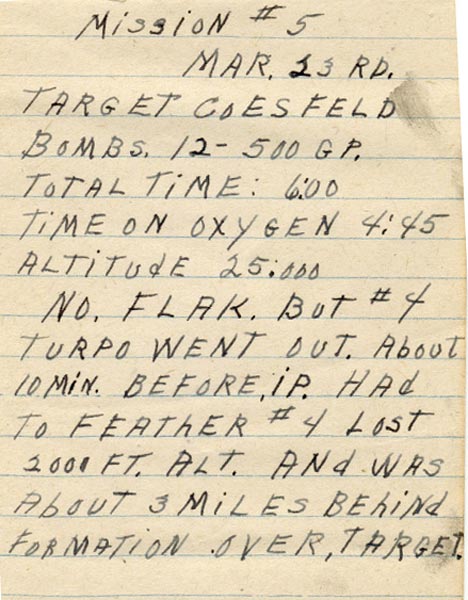 Mission # 5
MAR. 23 RD.
TARGET COESFELD
BOMBS. 12-500 G.P.
TOTAL TIME: 6:00
TIME ON OXYGEN 4:45
ALTITUdE 25:000
NO. FLAK. BuT #4
TURPO WENT OUT. About
10 MiN. BEFORE, iP. HAd
To FEATHER #4 LOST
2000 FT. ALT. ANd WAS
About 3 MILES BEHiNd
FORMATION OVER, TARGET.